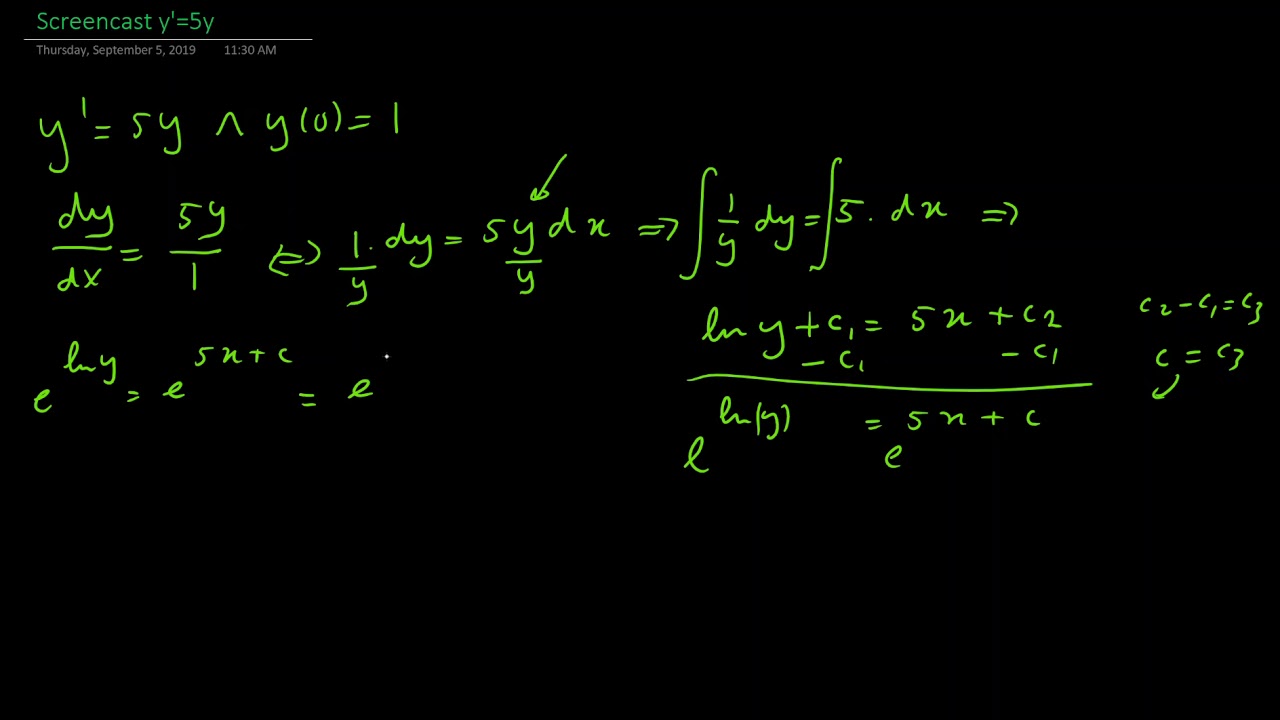 Screencast y'=5y
Thursday, September 5, 2019 11:30 AM
y' = 5y ∧ y(0) = 1
dy/dx = 5y/1 ⇔ 1/y · dy = 5y/y dx ⇒ ∫ 1/y dy = ∫ 5 · dx ⇒
ln y + c₁ = 5x + c₂
c₂ - c₁ = c₃
- c₁ - c₁
c = c₃
e^ln(y) = e^5x + c
e^ln y = e^5x + c = e